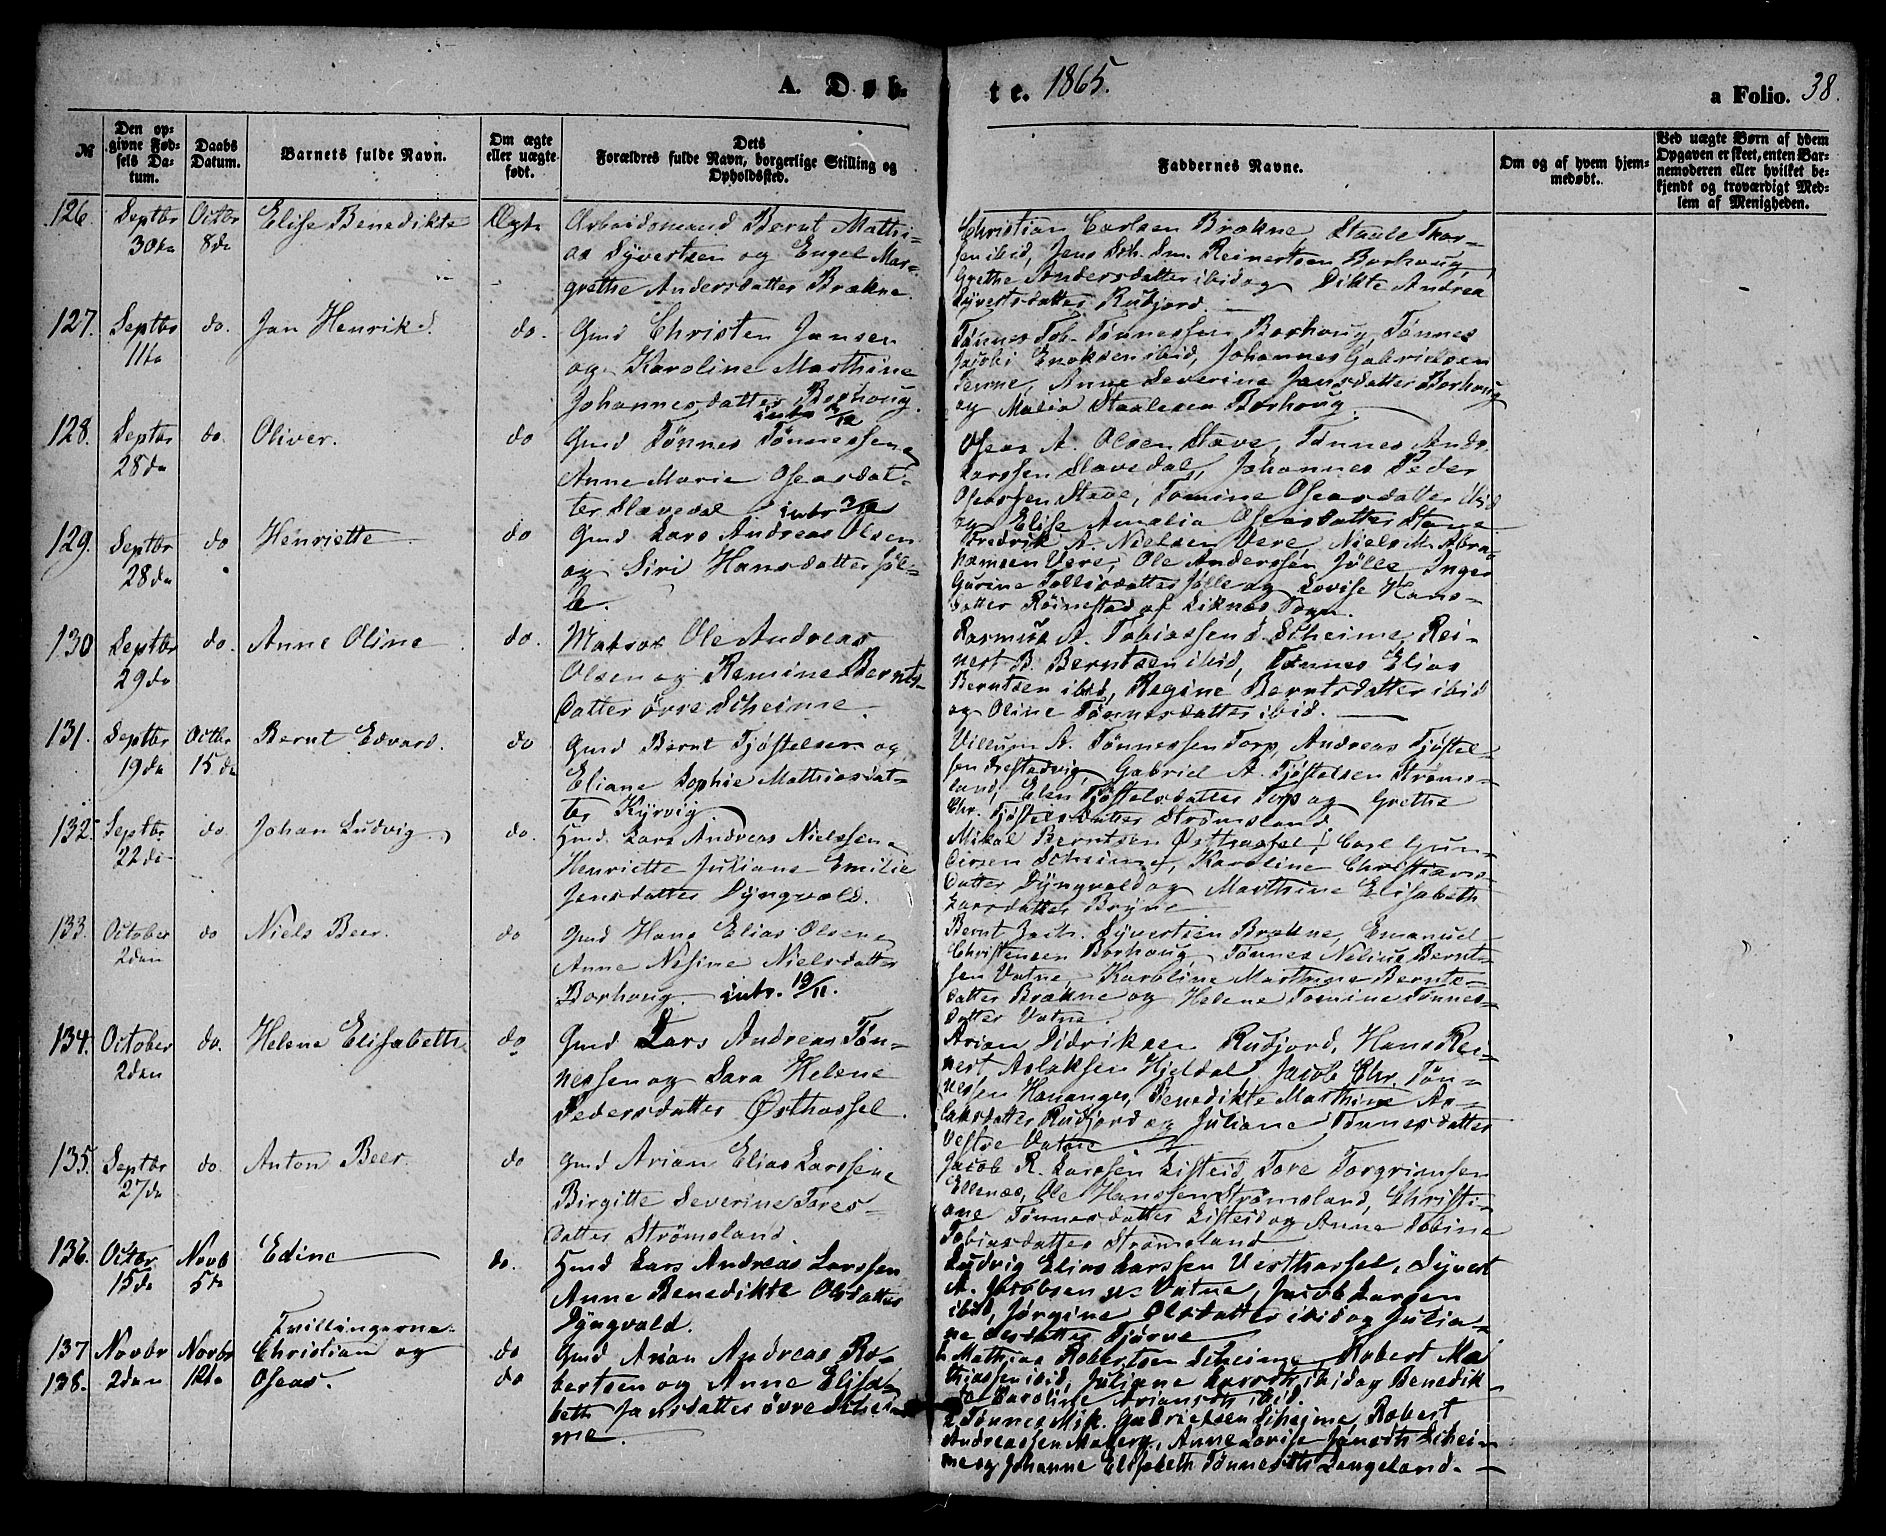 A. Døb-
te. 1865.
a Folio. 38.
№
Den op-
givne Fød-
sels Da-
tum.
Daabs
Datum.
Barnets fulde Navn.
Om ægte
eller uægte
født.
Dets
Forældres fulde Navn, borgerlige Stilling og
Opholdssted.
Faddernes Navne.
Om og af hvem hjem-
medøbt.
Ved uægte Børn af hvem
Opgaven er skeet, enten Bar-
nemoderen eller hvilket be-
kjendt og troværdigt Med-
lem af Menigheden.
126 Septbr 30te Octbr 8de Elise Benedikte Ægte
Arbeidsmand Bernt Mathi-
as Syvertsen og Engel Mar-
grethe Andersdatter Brækne.
Christian Carlsen Brækne, Staale Thor-
sen ibid, Jens Reinertsen Borhoug,
Grethe Andersdatter ibid og Dikte Andrea
Syvertsdatter Rudjord.
127. Septbr 11te do. Jan Henrik do.
Gmd Christen Jansen
og Karoline Marthine
Johannesdatter Borhoug.
Tønnes Tob. Tønnessen Borhoug, Tønnes
Jacobi Enoksen ibid, Johannes Gabrielsen
Temme, Anne Severine Jansdatter Borhoug
og Malia Staalesen Borhoug.
128. Septbr 28de do. Oliver. do
intr 3/12
Gmd Tønnes Tønnessen og
Anne Marie Oseasdat-
ter Stavedal
Oseas A. Olsen Stave, Tønnes Andr.
Larssen Stavedal, Johannes Peder
Oseassen Stave, Tomine Oseasdatter ibid
og Elise Amalia Oseasdatter Stave
129. Septbr 28de do Henriette do
Gmd Lars Andreas Olsen
og Siri Hansdatter Jøl-
le.
Fredrik A. Nielsen Vere, Niels M. Abra-
hamsen Vere, Ole Anderssen Jølle, Inger
Gurine Tollisdatter Jølle og Lovise Hans-
datter Røinestad af Liknes Sogn.
130 Septbr 29de do. Anne Oline do.
Matros Ole Andreas
Olsen og Remine Bernts-
datter øvre Scheime.
Rasmus A. Tobiassen ø. Scheime, Rei-
nert B. Berntsen ibid, Tønnes Elias
Berntsen ibid, Regine Berntsdatter ibid
og Oline Tønnesdatter ibid.
131. Septbr 19de Octbr 15de Bernt Edvard. do
Gmd Bernt Tjøstelsen og
Eliane Sophie Mathiasdat-
ter Kjrvig
Villum A. Tønnessen Torp, Andreas Tjøstel-
sen Prestadvig, Gabriel A. Tjøstelsen Strøms-
land, Elen Tjøstelsdatter Torp og Grethe
Chr. Tjøstelsdatter Strømsland
132. Septbr 22de do. Johan Ludvig do.
Hmd. Lars Andreas Nielssen og
Henriette Juliane Emilie
Jensdatter Dyngvold.
Mikal Berntsen Østhassel, Carl Gun-
dersen Scheime, Karoline Christians-
datter Dyngvold og Marthine Elisabeth
Larsdatter Bryne
133. October 2den do Niels Beer. do
Gmd Hans Elias Olsen og
Anne Nisine Nielsdatter
Borhoug. intr. 19/11.
Bernt Syvertsen Brækne, Emanuel
Christensen Borhoug, Tønnes Nelius Bernt-
sen Vatne, Karoline Marthine Bernts-
datter Brækne og Helene Tomine Tønnes-
datter Vatne.
134. October 2den do. Helene Elisabeth do
Gmd Lars Andreas Tøn-
nessen og Sara Helene
Pedersdatter Østhassel.
Arian Didriksen Rudjord, Hans Rei-
nert Aslaksen Hjeldal, Jacob Chr. Tøn-
nessen Hananger, Benedikte Marthine As-
laksdatter Rudjord og Juliane Tønnesdatter
Vestre Vatne
135. Septbr 27de do. Anton Beer. do
Gmd Arian Elias Larssen og
Birgitte Severine Tores-
datter Strømsland.
Jacob R. Larssen Listeid, Tore Torgrimsen
Ellenæs, Ole Hanssen Strømsland, Christi-
ane Tønnesdatter Listeid og Anne Tobine
Tobiasdatter Strømsland
136. Octbr 15de Novb 5te Edine do.
Hmd Lars Andreas Larssen
Anne Benedikte Olsdatter
Dyngvold.
Ludvig Elias Larssen Vesthassel, Syvert
A. Jacobsen Vatne, Jacob Larsen
ibid, Jørgine Olsdatter ibid og Julia-
ne Olsdatter Tjørve
Tvillingerne
137 Novbr 2den Novbr 12te Christian og do
138. Oseas. do
Gmd Arian Andreas Ro-
bertsen og Anne Elisa-
beth Jansdatter øvre Schei-
me.
Mathias Robertsen Scheime, Robert Ma-
thiassen ibid, Juliane Larsdtr ibid og Benedik-
te Caroline Ariansdtr ibid.
2 Tønnes Mik. Gabrielsen Scheime, Robert
Andreassen Maberg, Anne Lovise Jansdtr Schei-
me og Johanne Elisabeth Tønnesdtr Langeland.